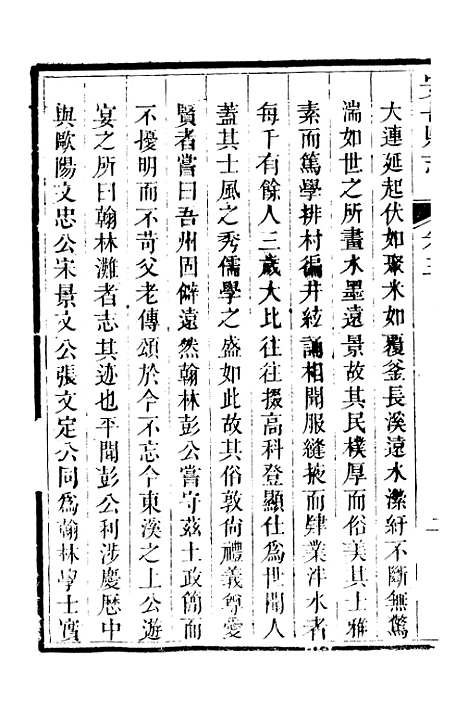 卷三
二
大連延起伏如聚米如覆釜長溪遠水瀠紆不斷無驚
湍如世之所畫水墨遠景故其民樸厚而俗美其士雅
素而篤學排村徧井絃誦相聞服縫掖而肄業泮水者
每千有餘人三歲大比往往掇高科登顯仕為世聞人
蓋其士風之秀儒學之盛如此故其俗敦尚禮義尊愛
賢者嘗曰吾州固僻遠然翰林彭公嘗守茲土政簡而
不擾明而不苛父老傳頌於今不忘今東溪之上公遊
宴之所曰翰林灘者志其迹也平聞彭公利涉慶歷中
與歐陽文忠公宋景文公張文定公同為翰林學士實